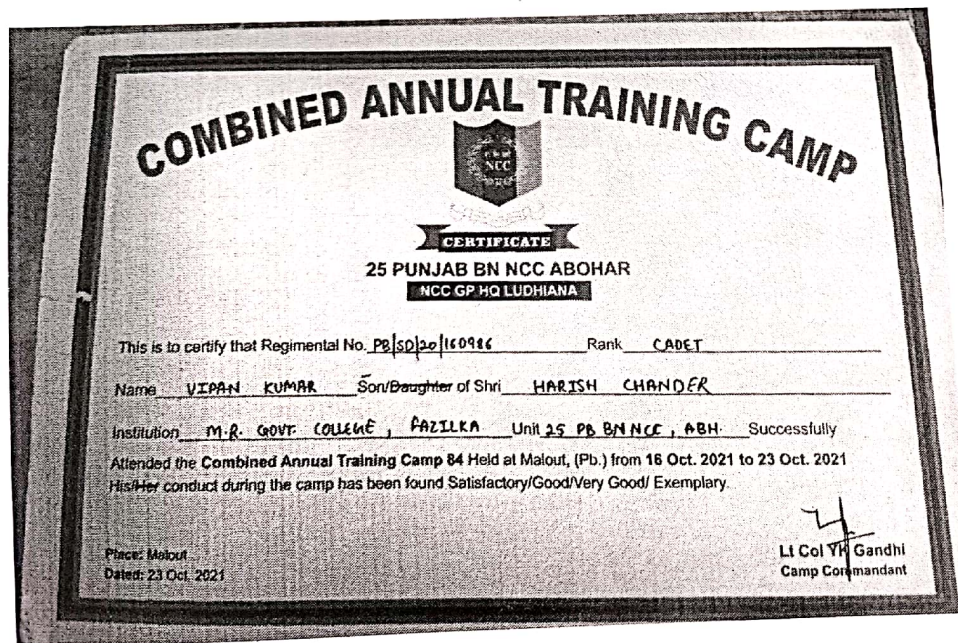 COMBINED ANNUAL TRAINING CAMP
NCC
CERTIFICATE
25 PUNJAB BN NCC ABOHAR
NCC GP HQ LUDHIANA
This is to certify that Regimental No. PB|SD|20|160986 Rank CADET
Name VIPAN KUMAR Son/Daughter of Shri HARISH CHANDER
Institution M.R. GOVT. COLLEGE, FAZILKA Unit 25 PB BN NCC, ABH. Successfully
Attended the Combined Annual Training Camp 84 Held at Malout, (Pb.) from 16 Oct. 2021 to 23 Oct. 2021
His/Her conduct during the camp has been found Satisfactory/Good/Very Good/ Exemplary.
Place: Malout
Dated: 23 Oct. 2021
Lt Col YK Gandhi
Camp Commandant